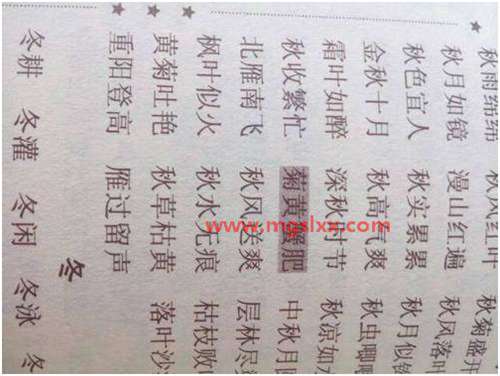 秋雨绵绵 秋风红叶
秋月如镜 漫山红遍 秋菊盛开
秋色宜人 秋实累累 秋风落叶
金秋十月 秋高气爽 秋月似
霜叶如醉 深秋时节 秋虫唧唧
秋收繁忙 菊黄蟹肥 秋凉如
北雁南飞 秋风送爽 中秋月
枫叶似火 秋水无痕 层林尽
黄菊吐艳 秋草枯黄 枯枝败
重阳登高 雁过留声 落叶沙
冬
冬耕 冬灌 冬闲 冬泳 冬
www.mgslxx.com